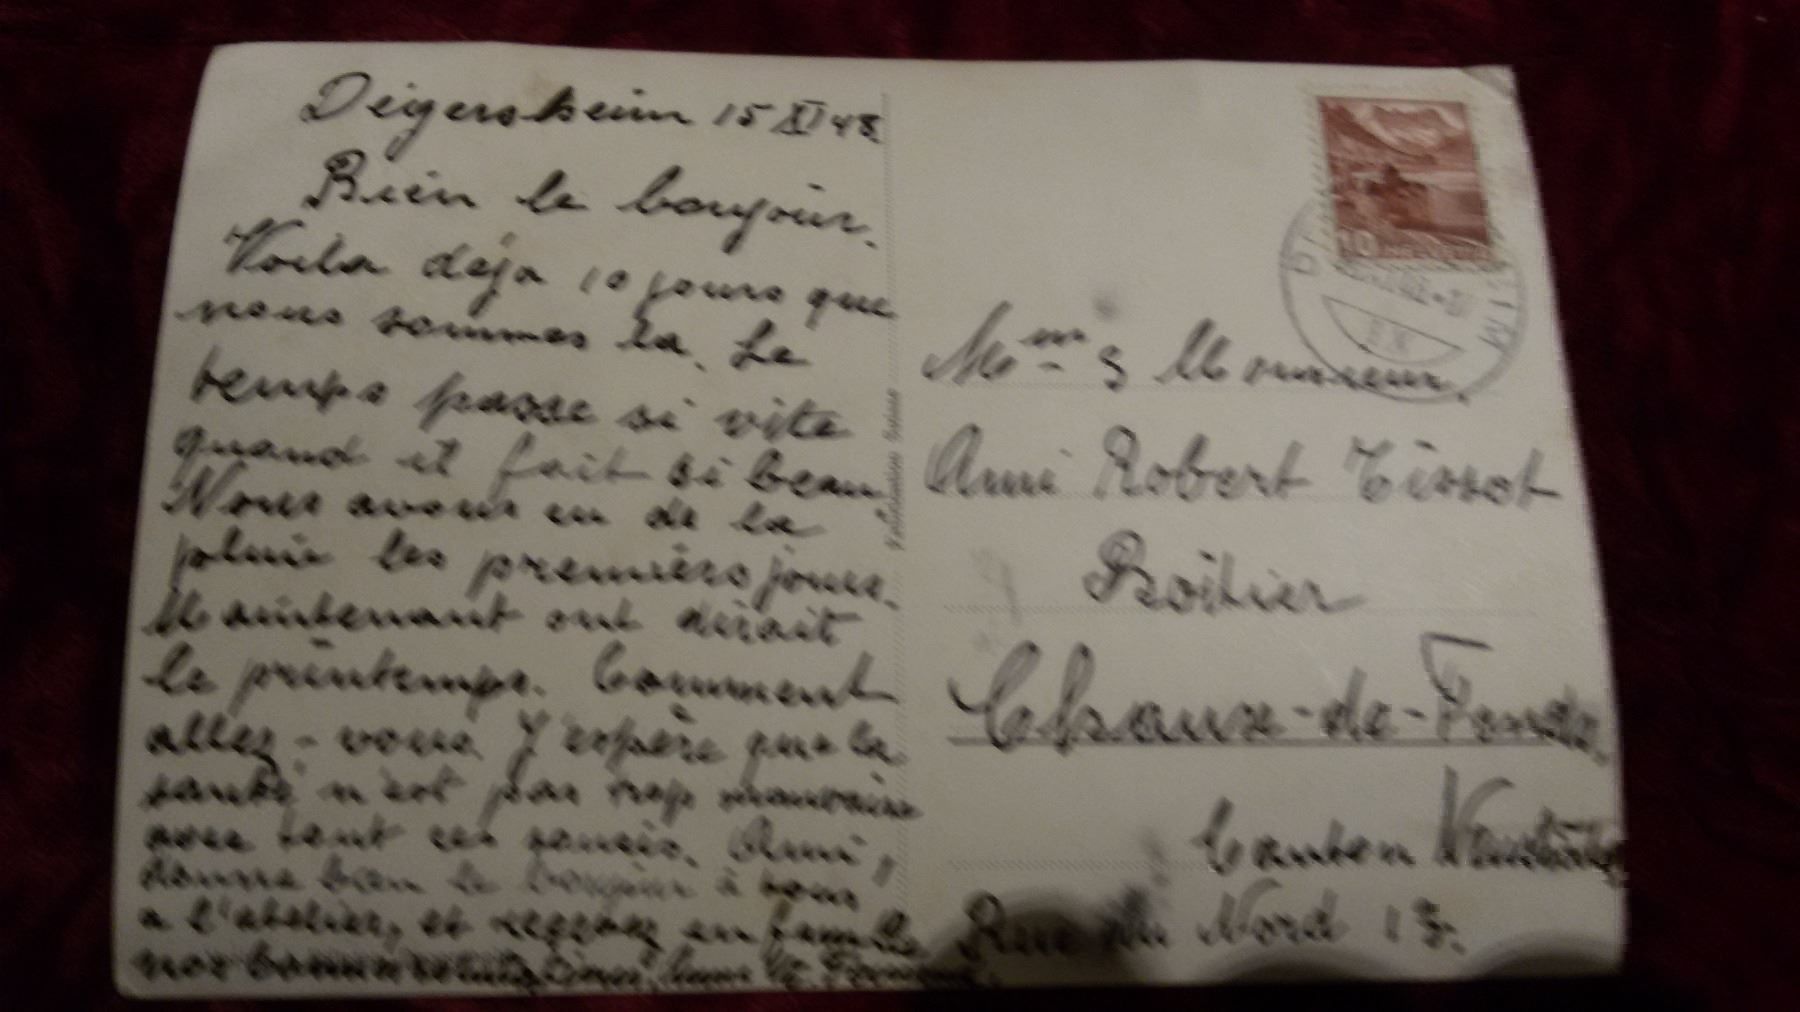 Degersheim 15 XI 48.
Bien le bonjour.
Voila déja 10 jours que
nous sommes la. Le
temps passe si vite
quand il fait si beau.
Nous avons eu de la
pluie les premiers jours.
Maintenant ont dirait
le printemps. Comment
allez-vous. J'espère que la
santé n'est pas trop mauvaise
avec tout ces soucis. Ami,
donne bien le bonjour à tous
a l'atelier, et reçevez en famille
nos bonnes salutations.
10
HELVETIA
Mme & Monsieur.
Ami Robert Tissot
Boîtier
Chaux-de-Fonds.
Canton Neuchâtel
Rue du Nord 13.